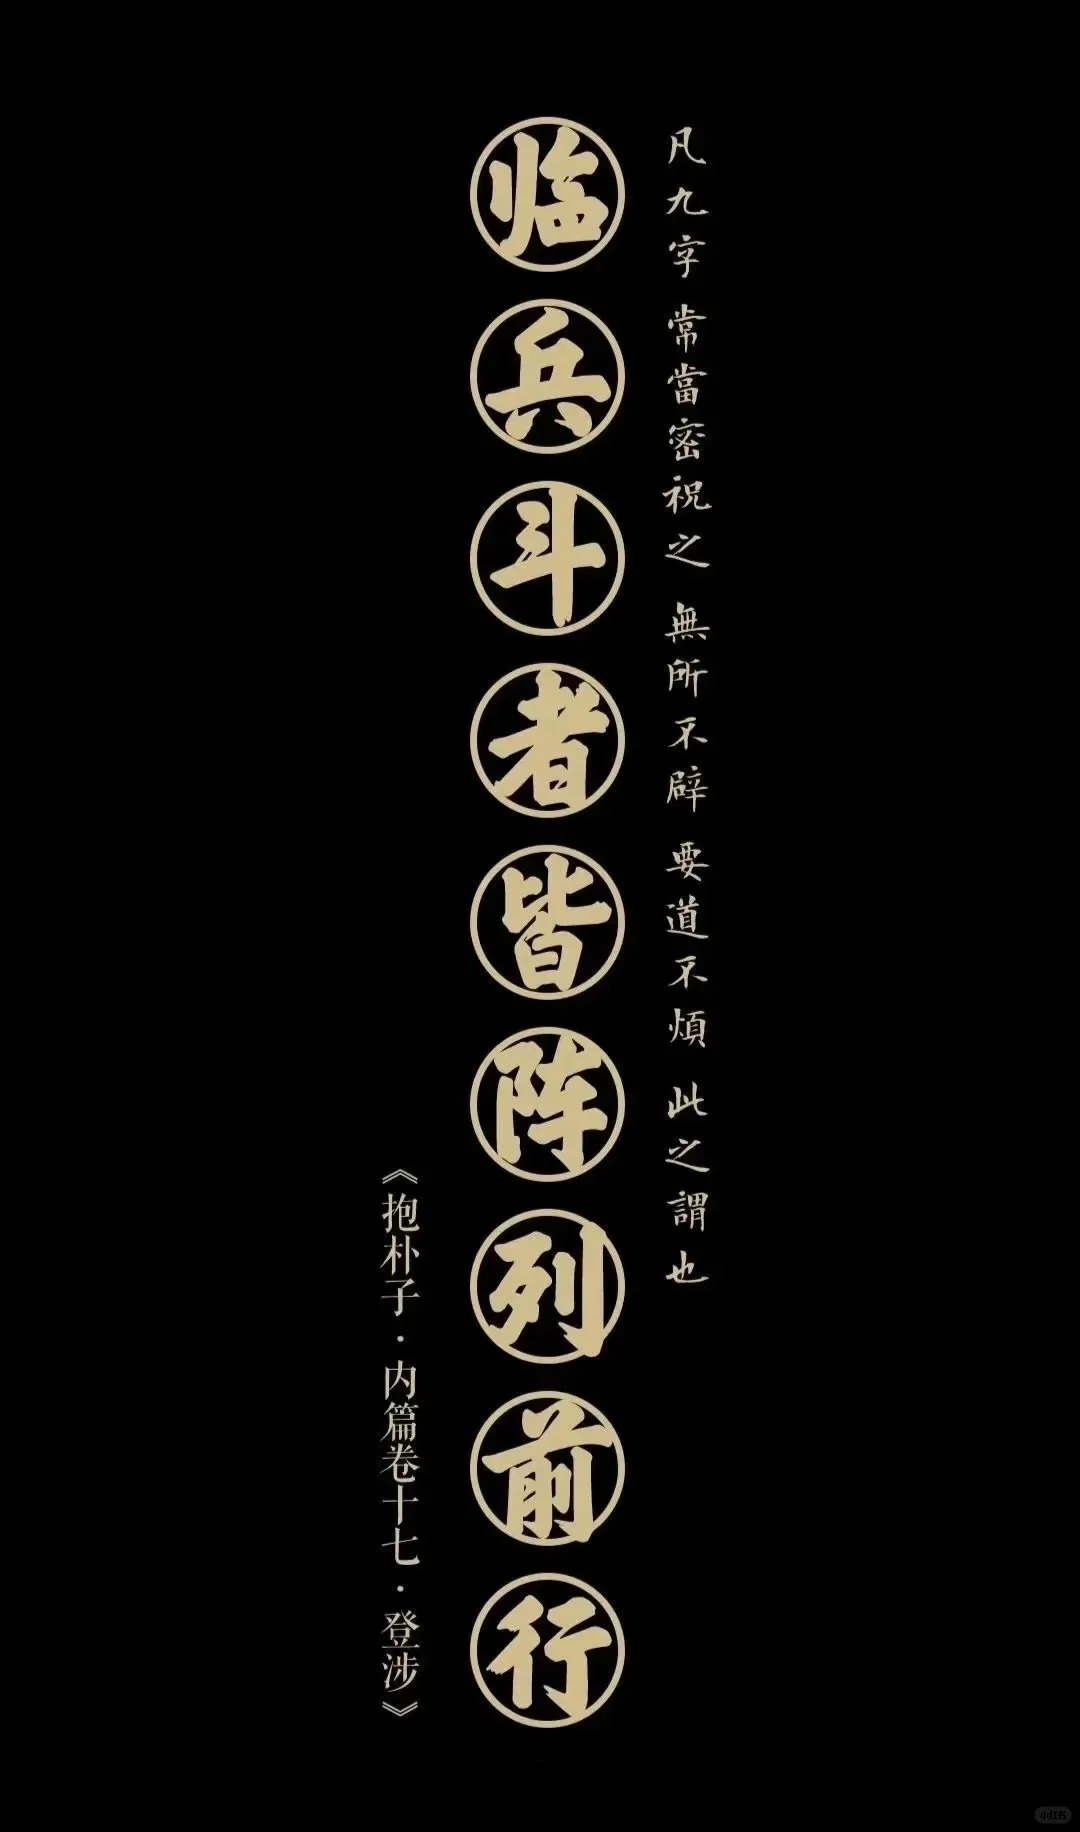 凡九字 常當密祝之 無所不辟 要道不煩 此之謂也
临兵斗者皆阵列前行
《抱朴子·内篇卷十七·登涉》